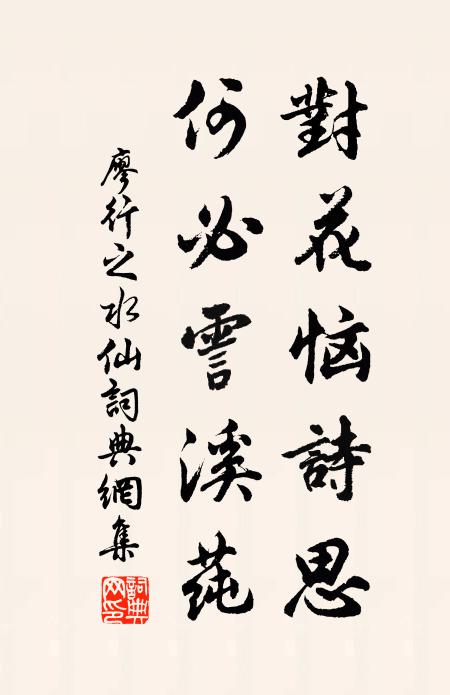 對花恼詩思
何必霅溪莼
廖行之水仙詞典網集
詞典网印